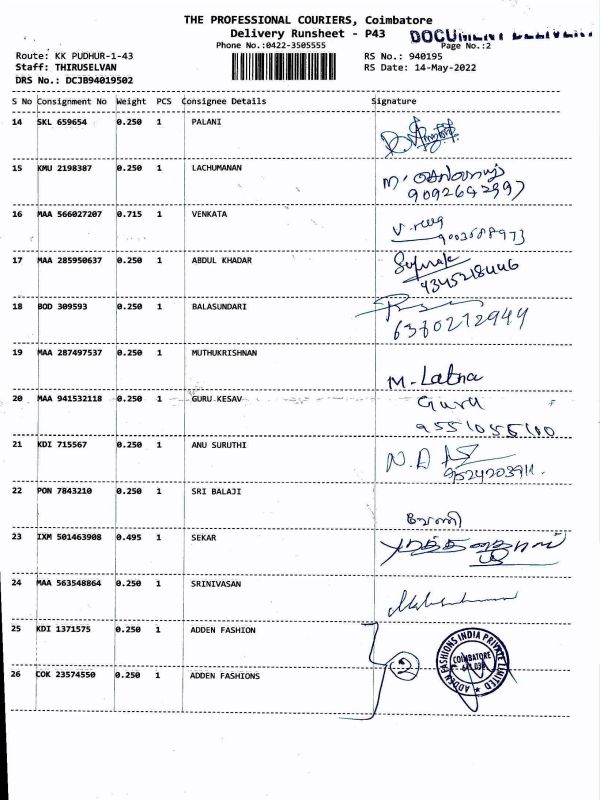 THE PROFESSIONAL COURIERS, Coimbatore
Delivery Runsheet - P43
DOCUMENT DELIVERY
Phone No.:0422-3505555
Page No.:2
Route: KK PUDHUR-1-43
RS No.: 940195
Staff: THIRUSELVAN
RS Date: 14-May-2022
DRS No.: DCJB94019502
S No Consignment No Weight PCS Consignee Details Signature
14 SKL 659654 0.250 1 PALANI
15 KMU 2198387 0.250 1 LACHUMANAN
9092642997
16 MAA 566027207 0.715 1 VENKATA
9003688973
17 MAA 285950637 0.250 1 ABDUL KHADAR
4345218446
18 BOD 309593 0.250 1 BALASUNDARI
6380272949
19 MAA 287497537 0.250 1 MUTHUKRISHNAN
M. Latha
20 MAA 941532118 0.250 1 GURU KESAV
Guru
9551055100
21 KDI 715567 0.250 1 ANU SURUTHI
9524203911
22 PON 7843210 0.250 1 SRI BALAJI
23 IXM 501463908 0.495 1 SEKAR
24 MAA 563548864 0.250 1 SRINIVASAN
25 KDI 1371575 0.250 1 ADDEN FASHION
2
ADDEN FASHIONS INDIA PRIVATE LIMITED
COIMBATORE
641 038
26 COK 23574550 0.250 1 ADDEN FASHIONS